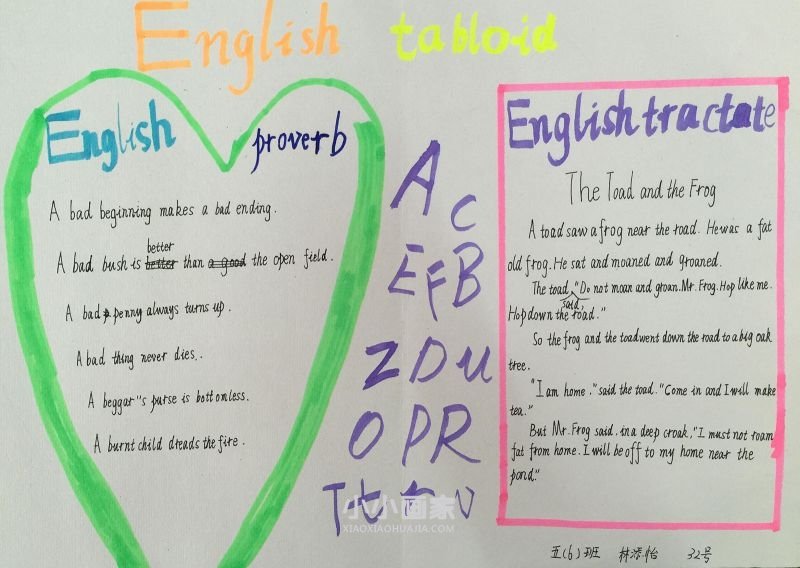 English tabloid
English proverb
A bad beginning makes a bad ending.
better
A bad bush is better than a good the open field.
A bad penny always turns up.
A bad thing never dies.
A beggar"s purse is bottomless.
A burnt child dreads the fire.
A C
E F B
Z D U
O P R
T t
English tractate
The Toad and the Frog
A toad saw a frog near the road. He was a fat
old frog. He sat and moaned and groaned.
The toad "Do not moan and groan. Mr. Frog. Hop like me.
said,
Hop down the road."
So the frog and the toad went down the road to a big oak
tree.
"I am home." said the toad. "Come in and I will make
tea."
But Mr. Frog said. in a deep croak, "I must not roam
fat from home. I will be off to my home near the
pond."
五(6)班 林添怡 32号
小小画家
XIAOXIAOHUAJIA.COM